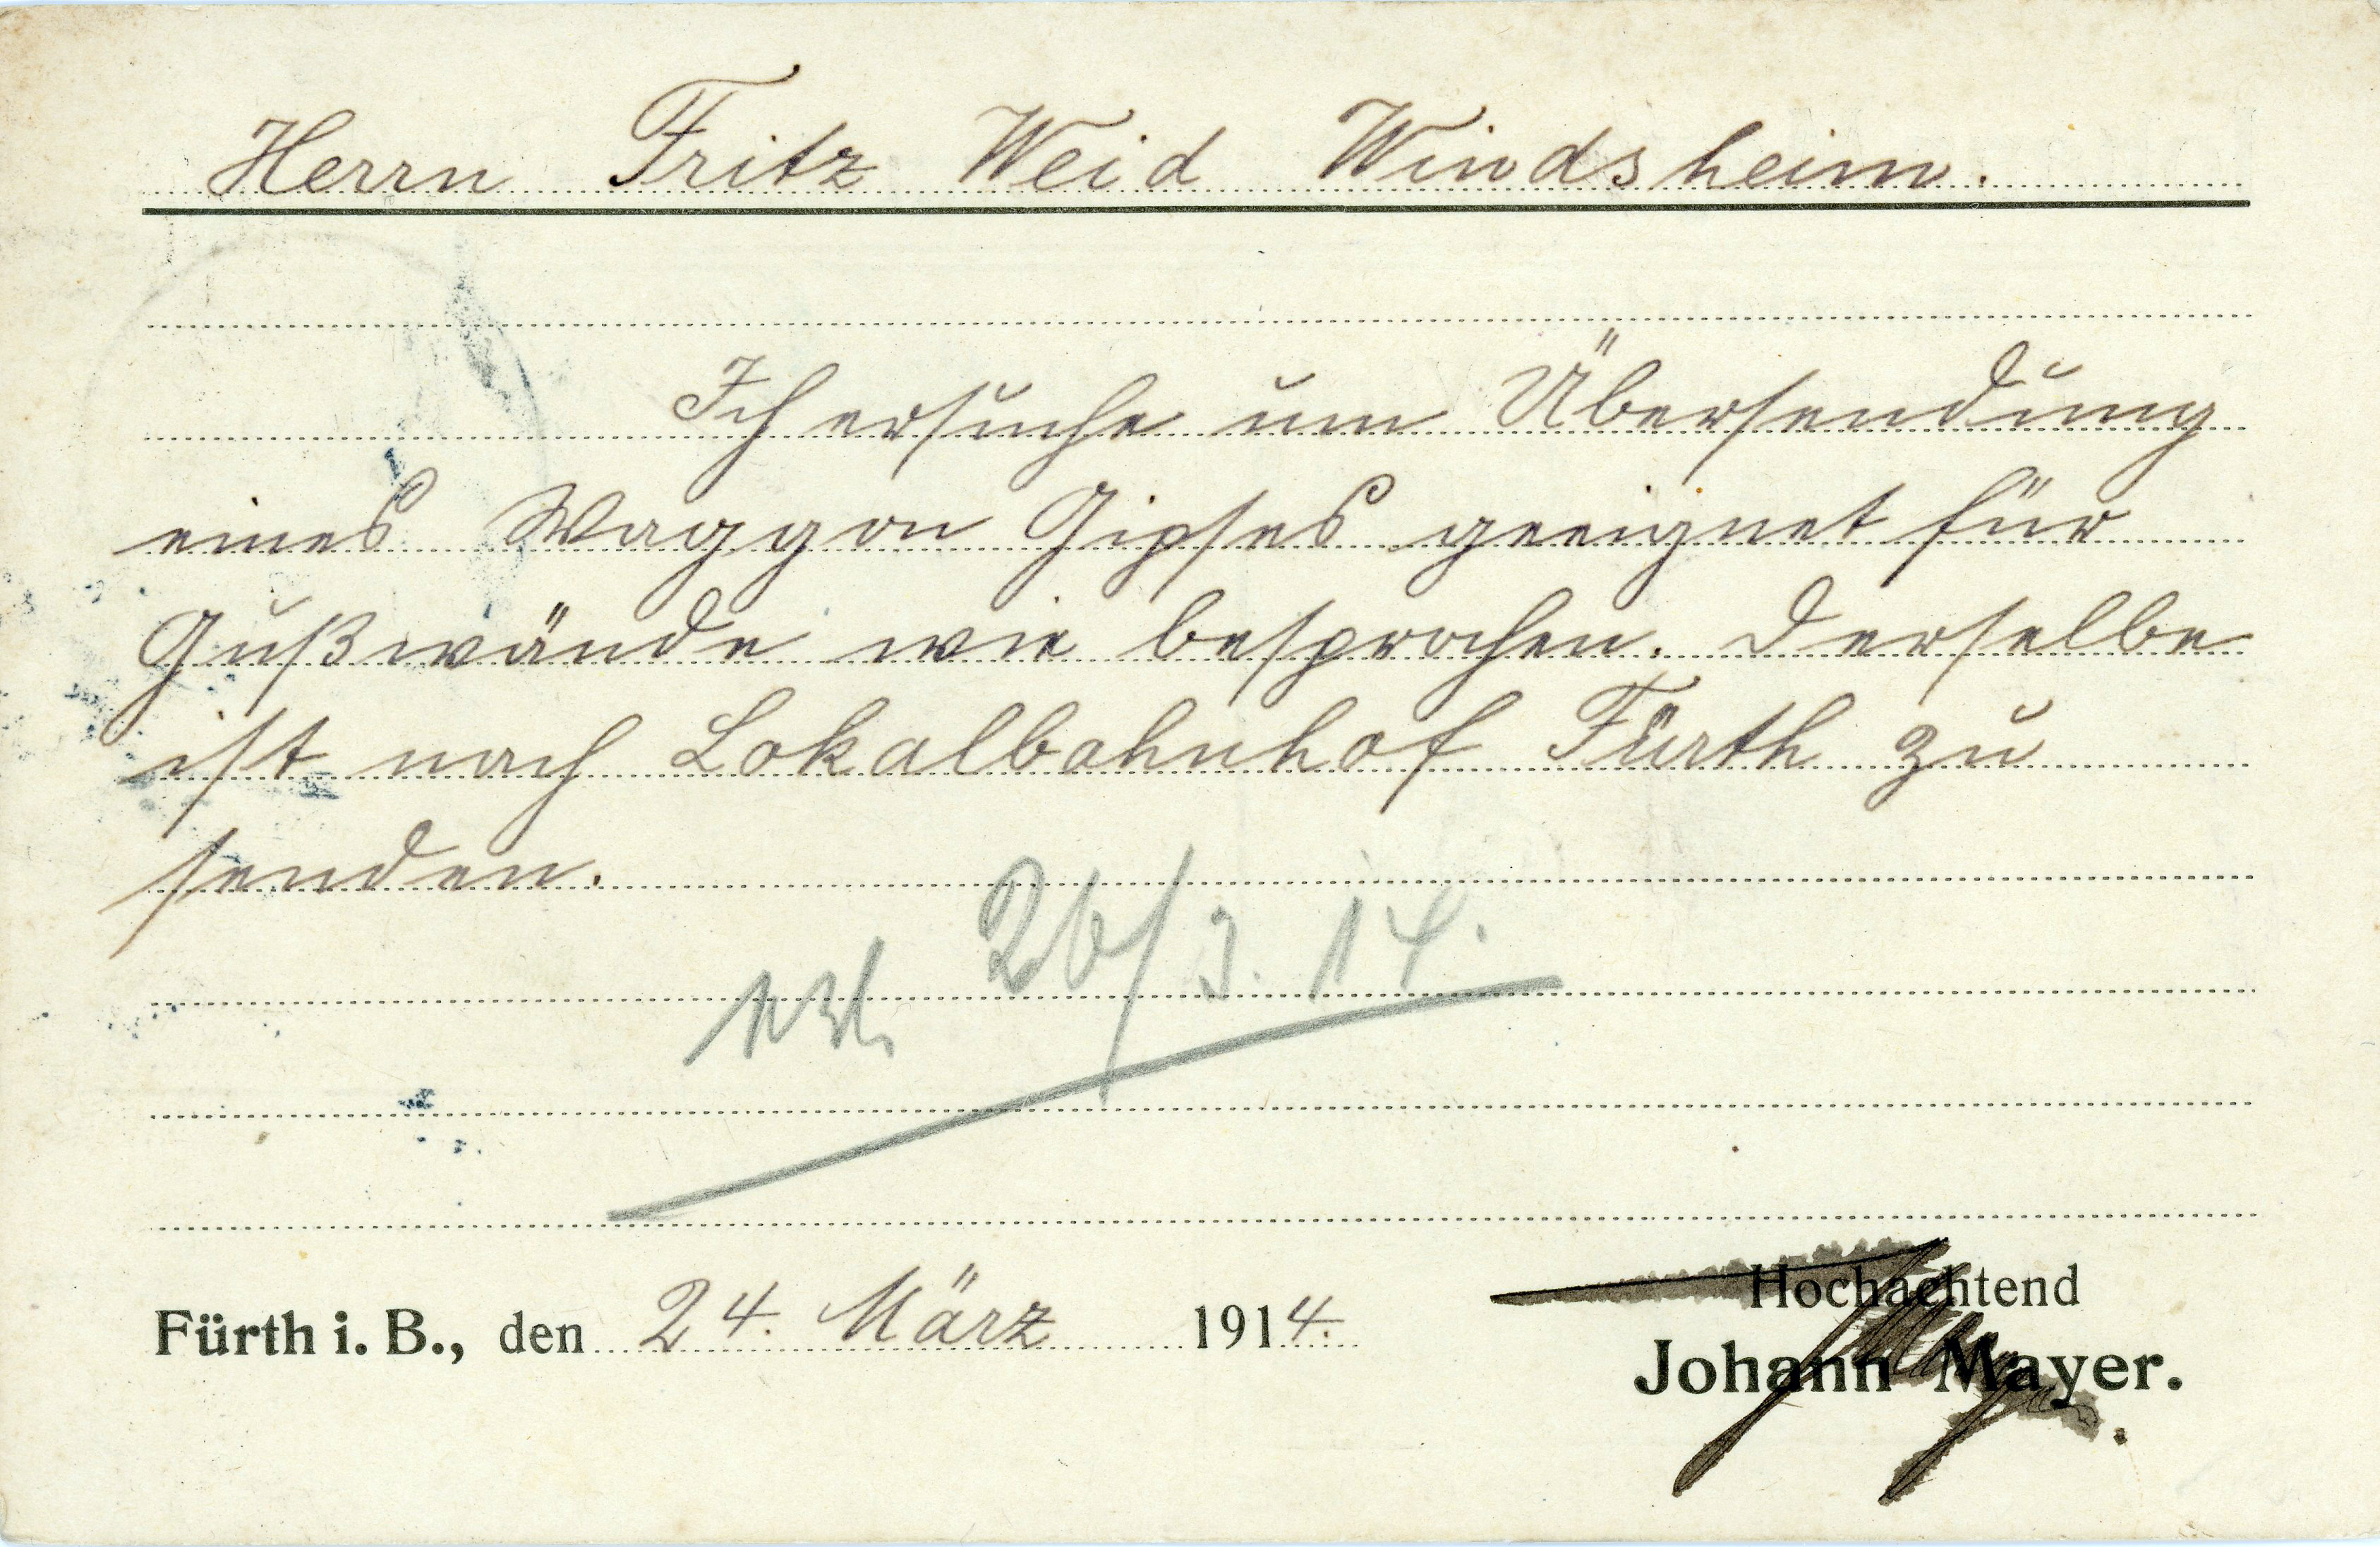 Herrn Fritz Weid Windsheim.
Ich ersuche um Übersendung
eines Waggon Gipses geeignet für
Gußwände wie besprochen. Derselbe
ist nach Lokalbahnhof Fürth zu
senden.
26/3. 14.
Fürth i. B., den 24. März 1914.
Hochachtend
Johann Mayer.